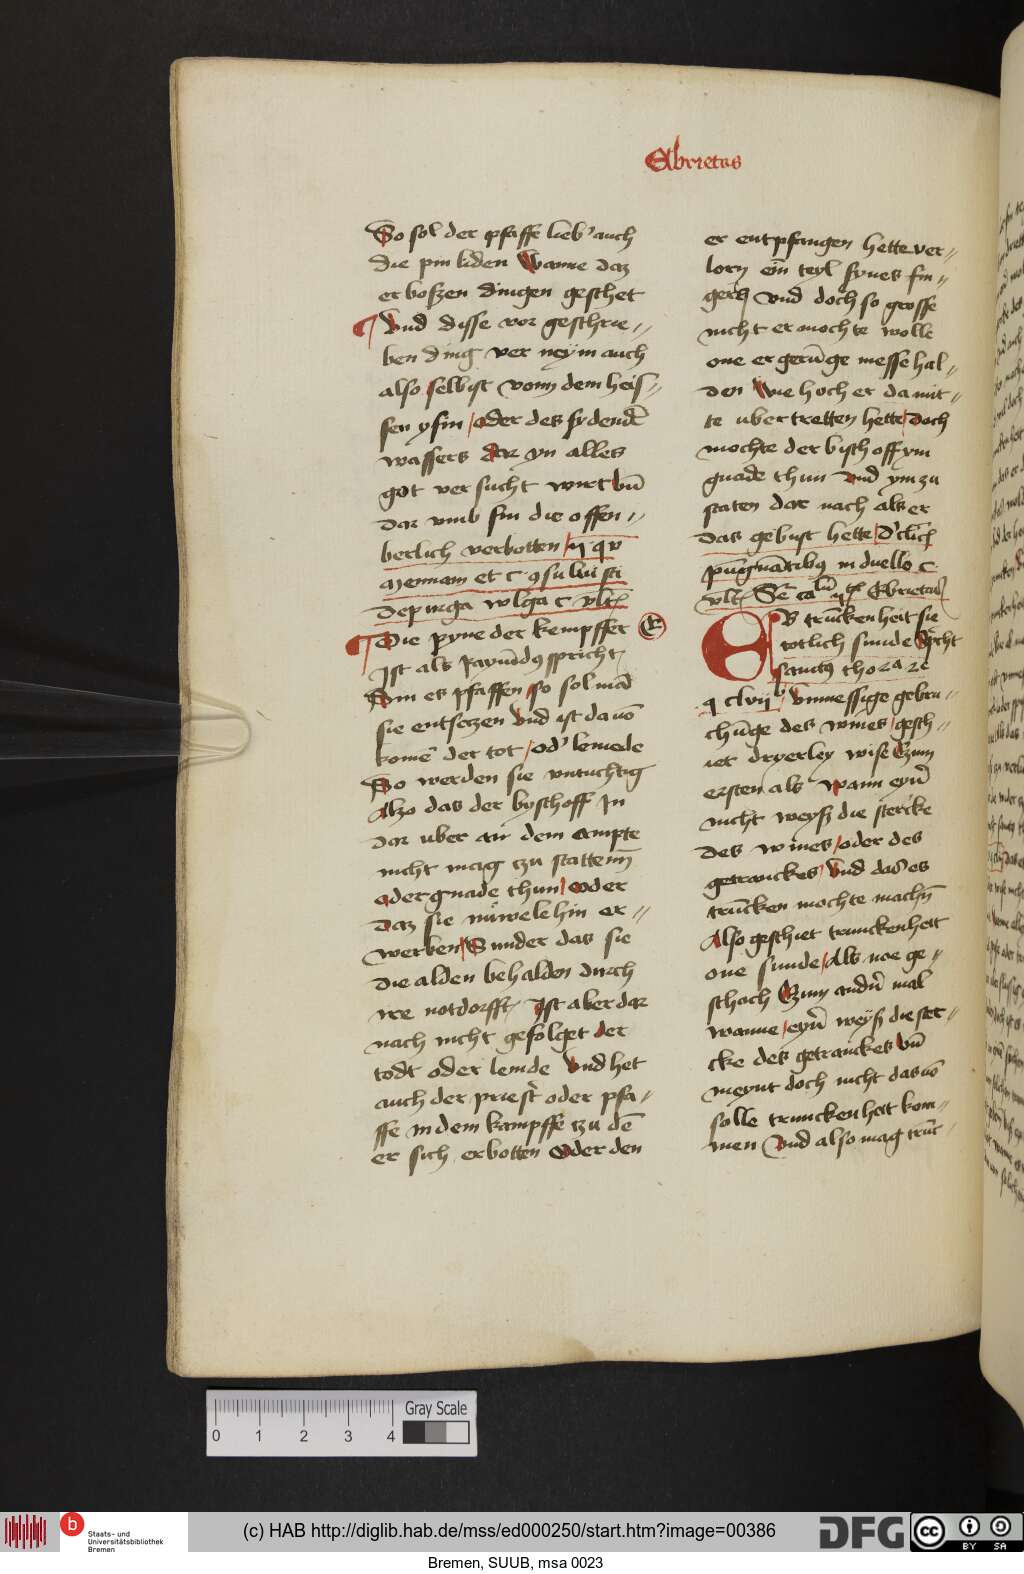 Ebrietas
So sol der pfaffe lieb' auch
die pin liden Wanne daz
er boszen dingen geschet
Vnd disse vor geschrie〃
ben ding ver neym auch
also selbist vonn dem heis〃
sen ysin / oder des sydendē
wassers dar yn alles
got ver sucht wirt vn̄
dar vmb sin die offen〃
berlich verbotten / ij q v
Mennam et c ꝯsuluisti
De purga wlga c vlt
Die pyne der kempffer
Jst als Raymūdꝰ spricht
Sint es pfaffen / so sol mā
sie entsetzen vnd ist da vō
komē der tot / od' lemede
So werden sie vntuchtig
Alzo das der byschoff Jn
dar uber an dem ampte
nicht mag tzu statten
oder gnade thun / oder
daz sie nuwelehin er〃
werben / Sunder das sie
die alden behalden durch
ire notdorfft Jst aber dar
nach nicht gefolget der
todt oder lemde Vnd het
auch der priest' oder pfa〃
ffe in dem kampffe tzu dē
er sich erbotten Oder den
er entpfangen hette ver〃
lorn ein teyl synes fin〃
gers vnd doch so grosse
nicht er mochte wolle
one ergerūge messe hal〃
den Wie hoch er da mit〃
te ubertretten hette / doch
mochte der bischoff ym
gnade thun vnd ym zu
staten dar nach als er
das gebust hette / d' clic
pugnātibꝰ in duello c
vlt Se ca Ebrietas
OB trūkenheit sie
totlich sunde Spricht
sanctꝰ thomas
q clvij Vnmessige gebru〃
chūge des wines / gesch〃
iet dryerley wise Czum
ersten als wann eyn'
nicht weyß die stercke
des wines / oder des
getranckes / Vnd das es
trūcken mochte machn̄
Also geschiet trunckenheit
one sunde / Als noe ge〃
schach Czum andn' mal
wanne eyn' weyß die ster〃
cke des getranckes vn̄
meynt doch nicht das vō
solle trunckenheit kom〃
men Vnd also mag trūc〃
0 1 2 3 4
Gray Scale
Staats- und
Universitätsbibliothek
Bremen
(c) HAB http://diglib.hab.de/mss/ed000250/start.htm?image=00386
DFG
cc BY SA
Bremen, SUUB, msa 0023